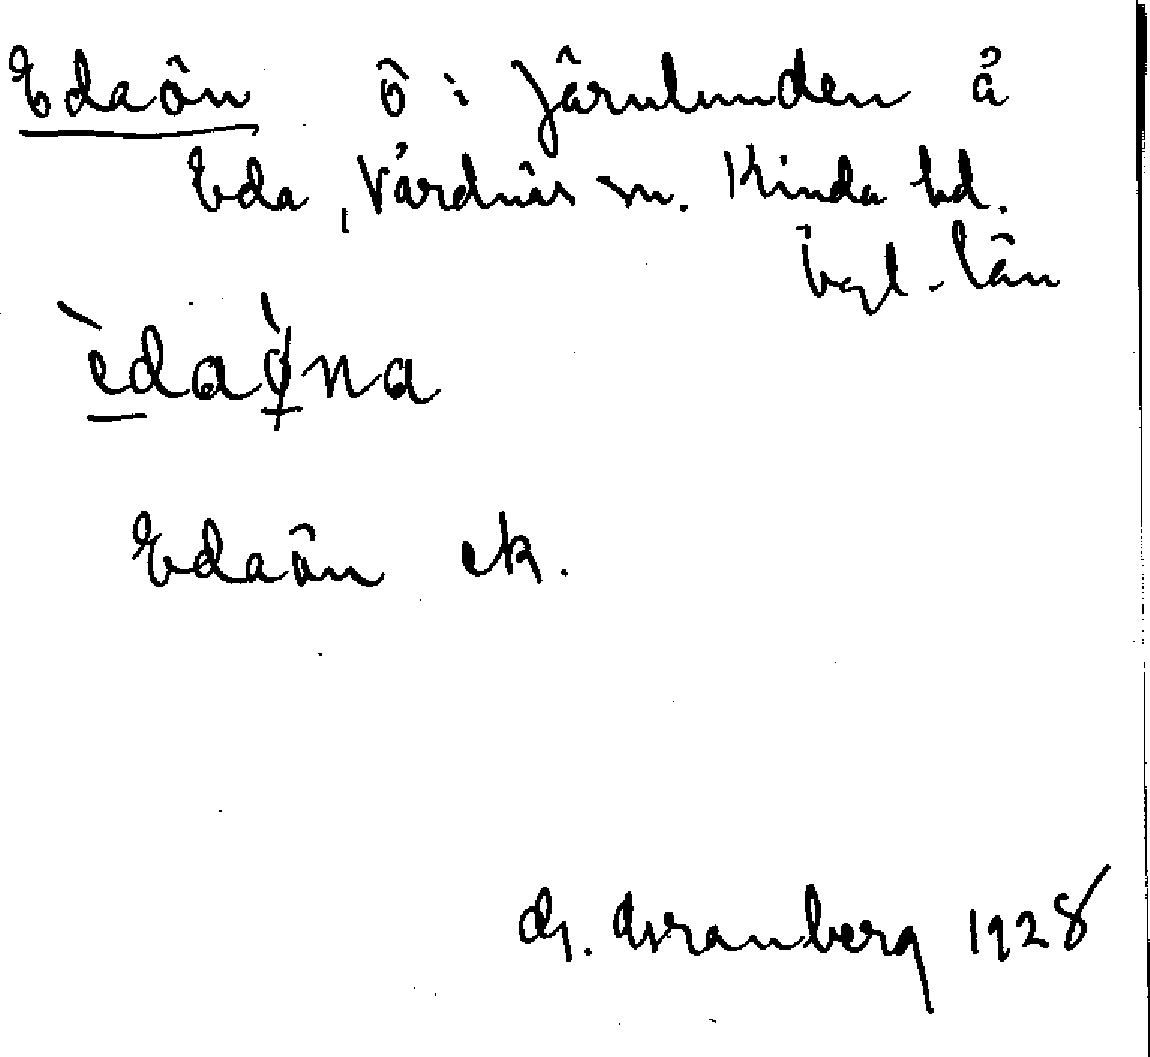 Edaön ö i Järnlunden å
Eda, Vårdnäs sn. Kinda hd.
Ögl. län
èdaò̱na
Edaön ek.
G. Granberg 1928